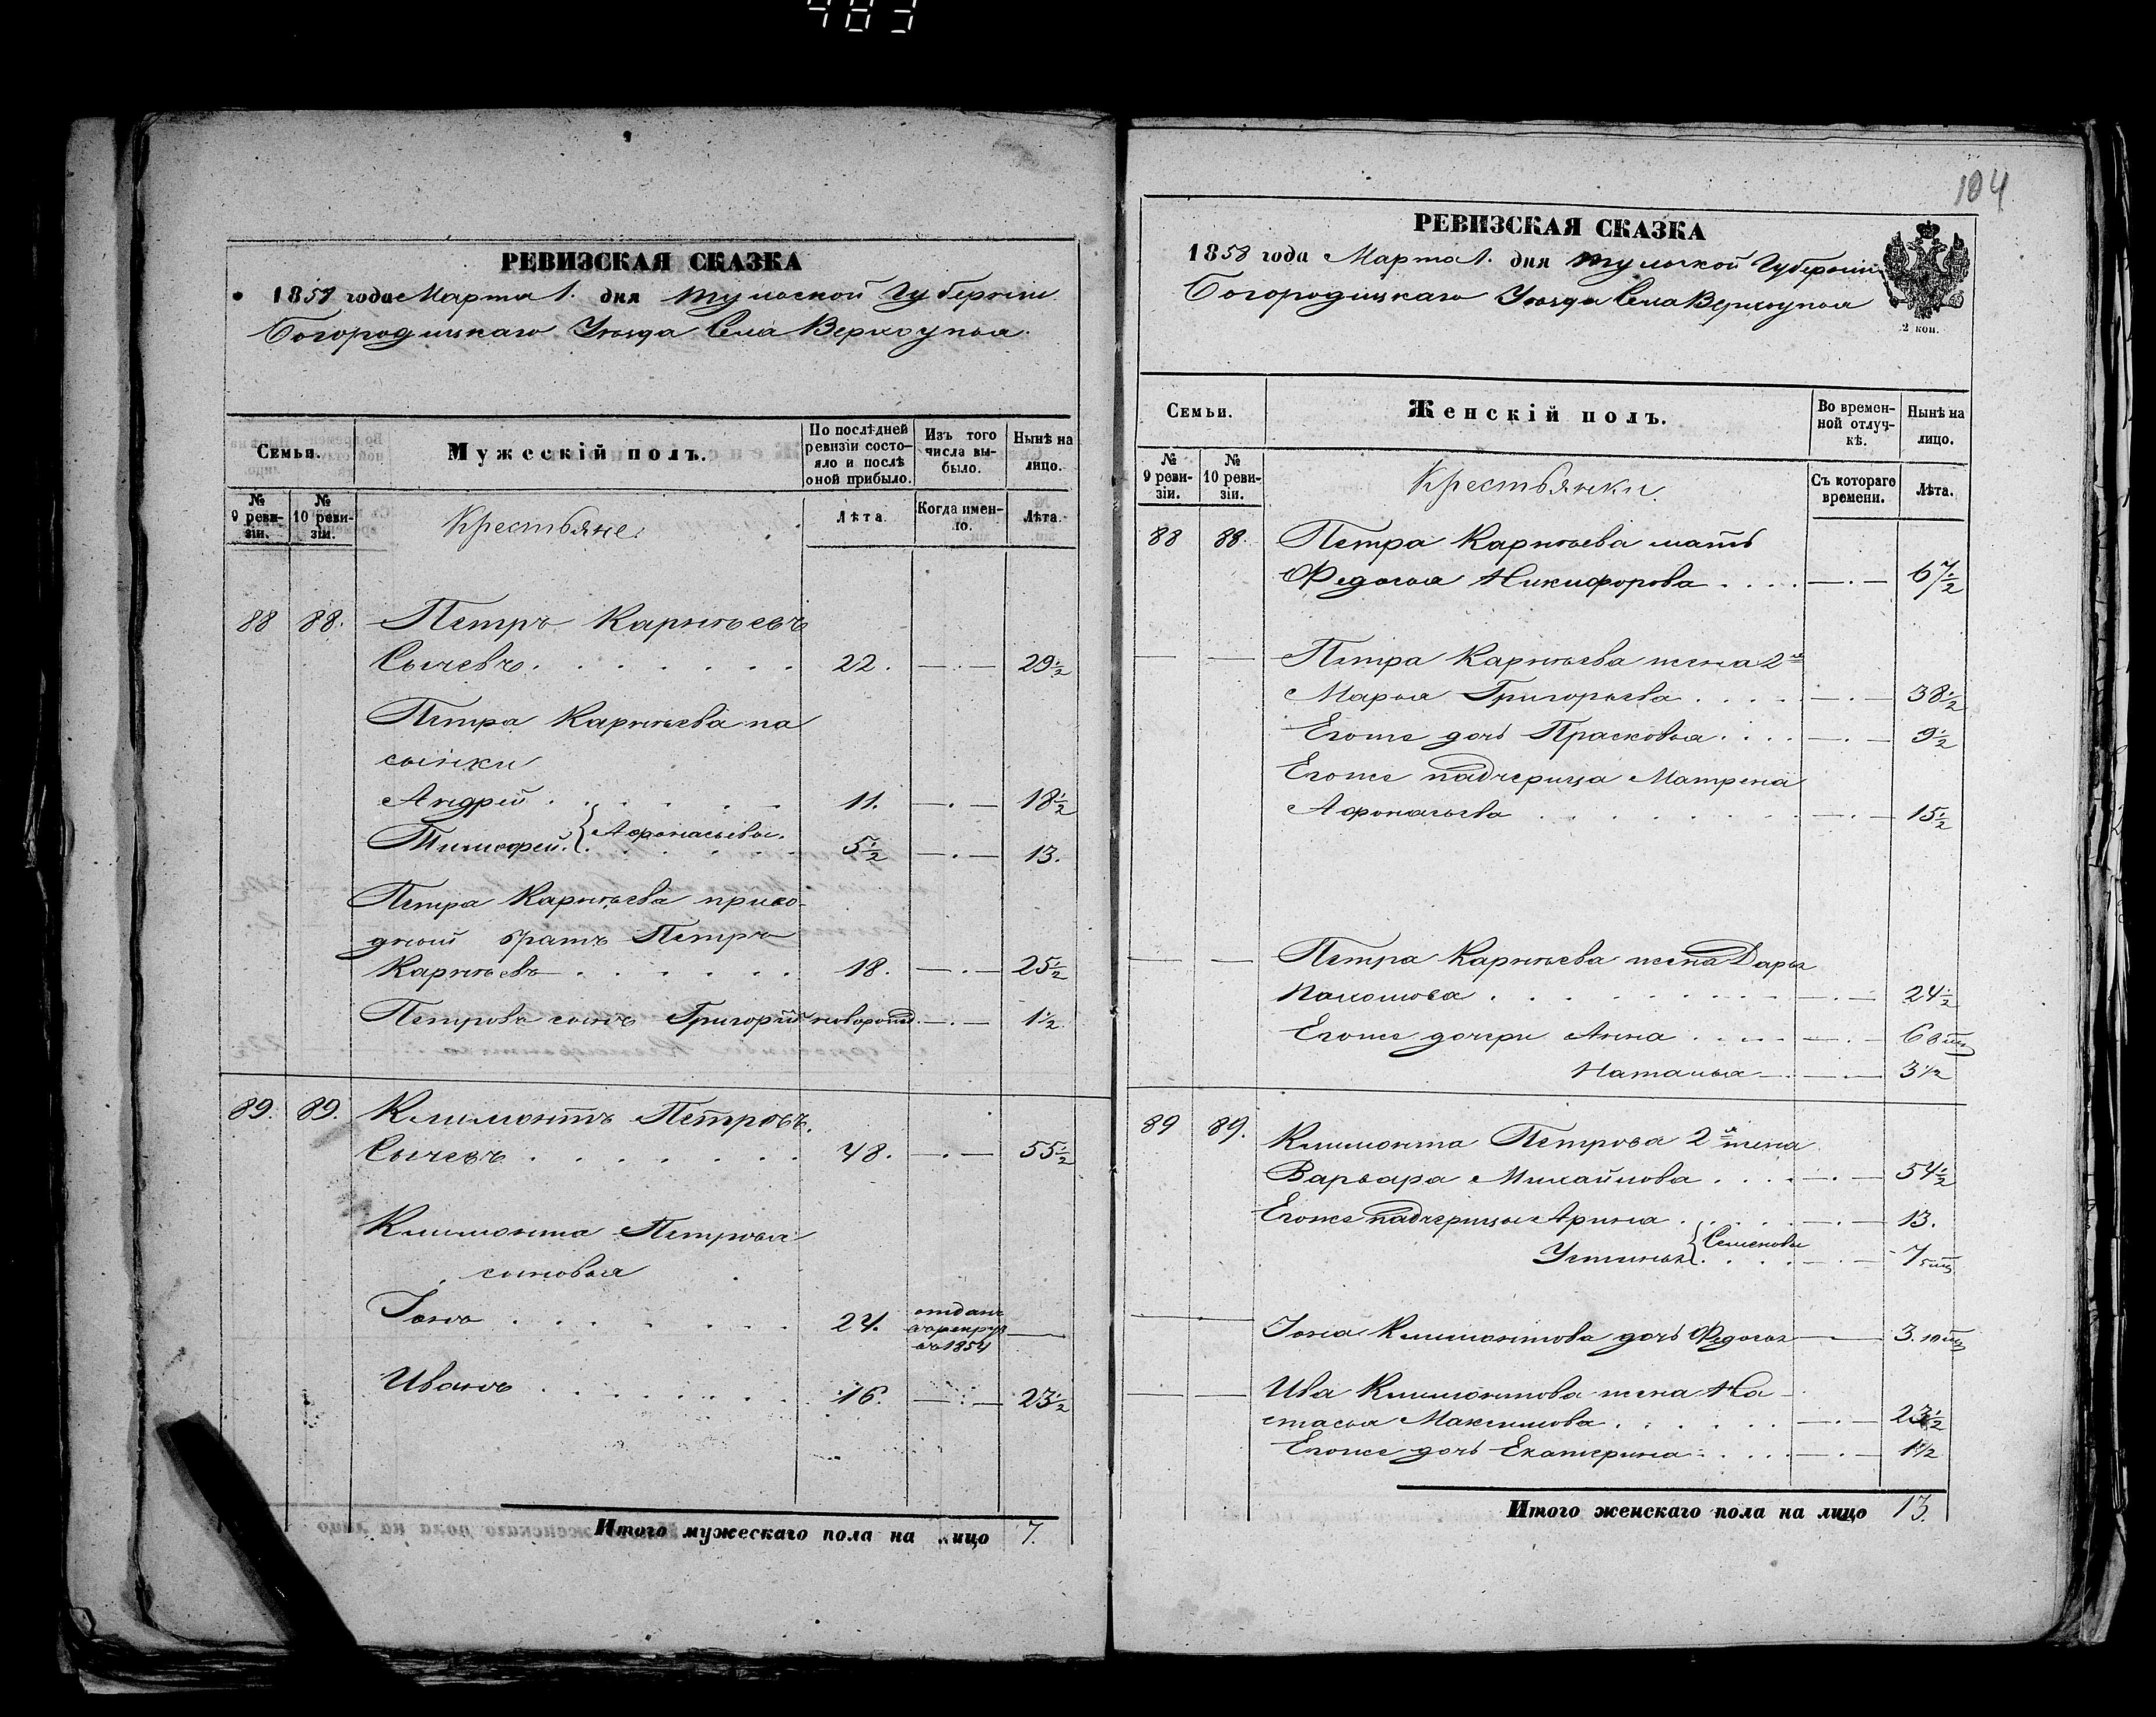 483
РЕВИЗСКАЯ СКАЗКА
1858 года Марта 1. дня Тульской Губернии
Богородицкаго Уѣзда Села Верхоупья.
Семьи.
Мужескій полъ.
По послѣдней ревизіи состо-яло и послѣ оной прибыло.
Изъ того числа вы-было.
Нынѣ на лицо.
№ 9 реви-зіи.
№ 10 реви-зіи.
Крестьяне.
Лѣта.
Когда имен-но.
Лѣта.
88 88. Петръ Карнѣевъ
Сычевъ. 22. 29½
Петра Карнѣева па
сынки
Андрей 11. 18½
Тимофей Афонасьевы. 5½ 13.
Петра Карнѣева приво-
дной братъ Петръ
Карнѣевъ 18. 25½
Петрова сынъ Григорій новорожд. 1½
89. 89. Климонтъ Петровъ.
Сычевъ 48. 55½
Климонта Петрова
сыновья
Іонъ 24. отданъ
въ рекруты
въ 1854
Иванъ 16. 23½
Итого мужескаго пола на лицо 7.
104
РЕВИЗСКАЯ СКАЗКА
1858 года Марта 1. дня Тульской Губерніи
Богородицкаго Уѣзда Села Верхоупья
2 коп.
Семьи.
Женскій полъ.
Во времен-ной отлуч-кѣ.
Нынѣ на лицо.
№ 9 реви-зіи.
№ 10 реви-зіи.
Крестьянки.
Съ котораго времени.
Лѣта.
88 88. Петра Карнѣева мать
Федосья Никифорова 67½
Петра Карнѣева жена 2я
Марья Григорьева 38½
Егоже дочь Прасковья 9½
Егоже падчерица Матрена
Афонасьева 15½
Петра Карнѣева жена Дарья
Пахомова 24½
Егоже дочери Анна 6 8 мц
Наталья 3½
89 89. Климонта Петрова 2я жена
Варвара Михайлова 54½
Егоже падчерицы Арина 13.
Устинья Семеновы 7 5 мц
Іона Климонтова дочь Федосья 3. 10 мц
Ива Климонтова жена На
стасья Максимова 23½
Егоже дочь Екатерина 1½
Итого женскаго пола на лицо 13.